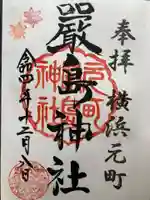 奉拝
横浜元町
嚴島神社
令和四年十二月八日